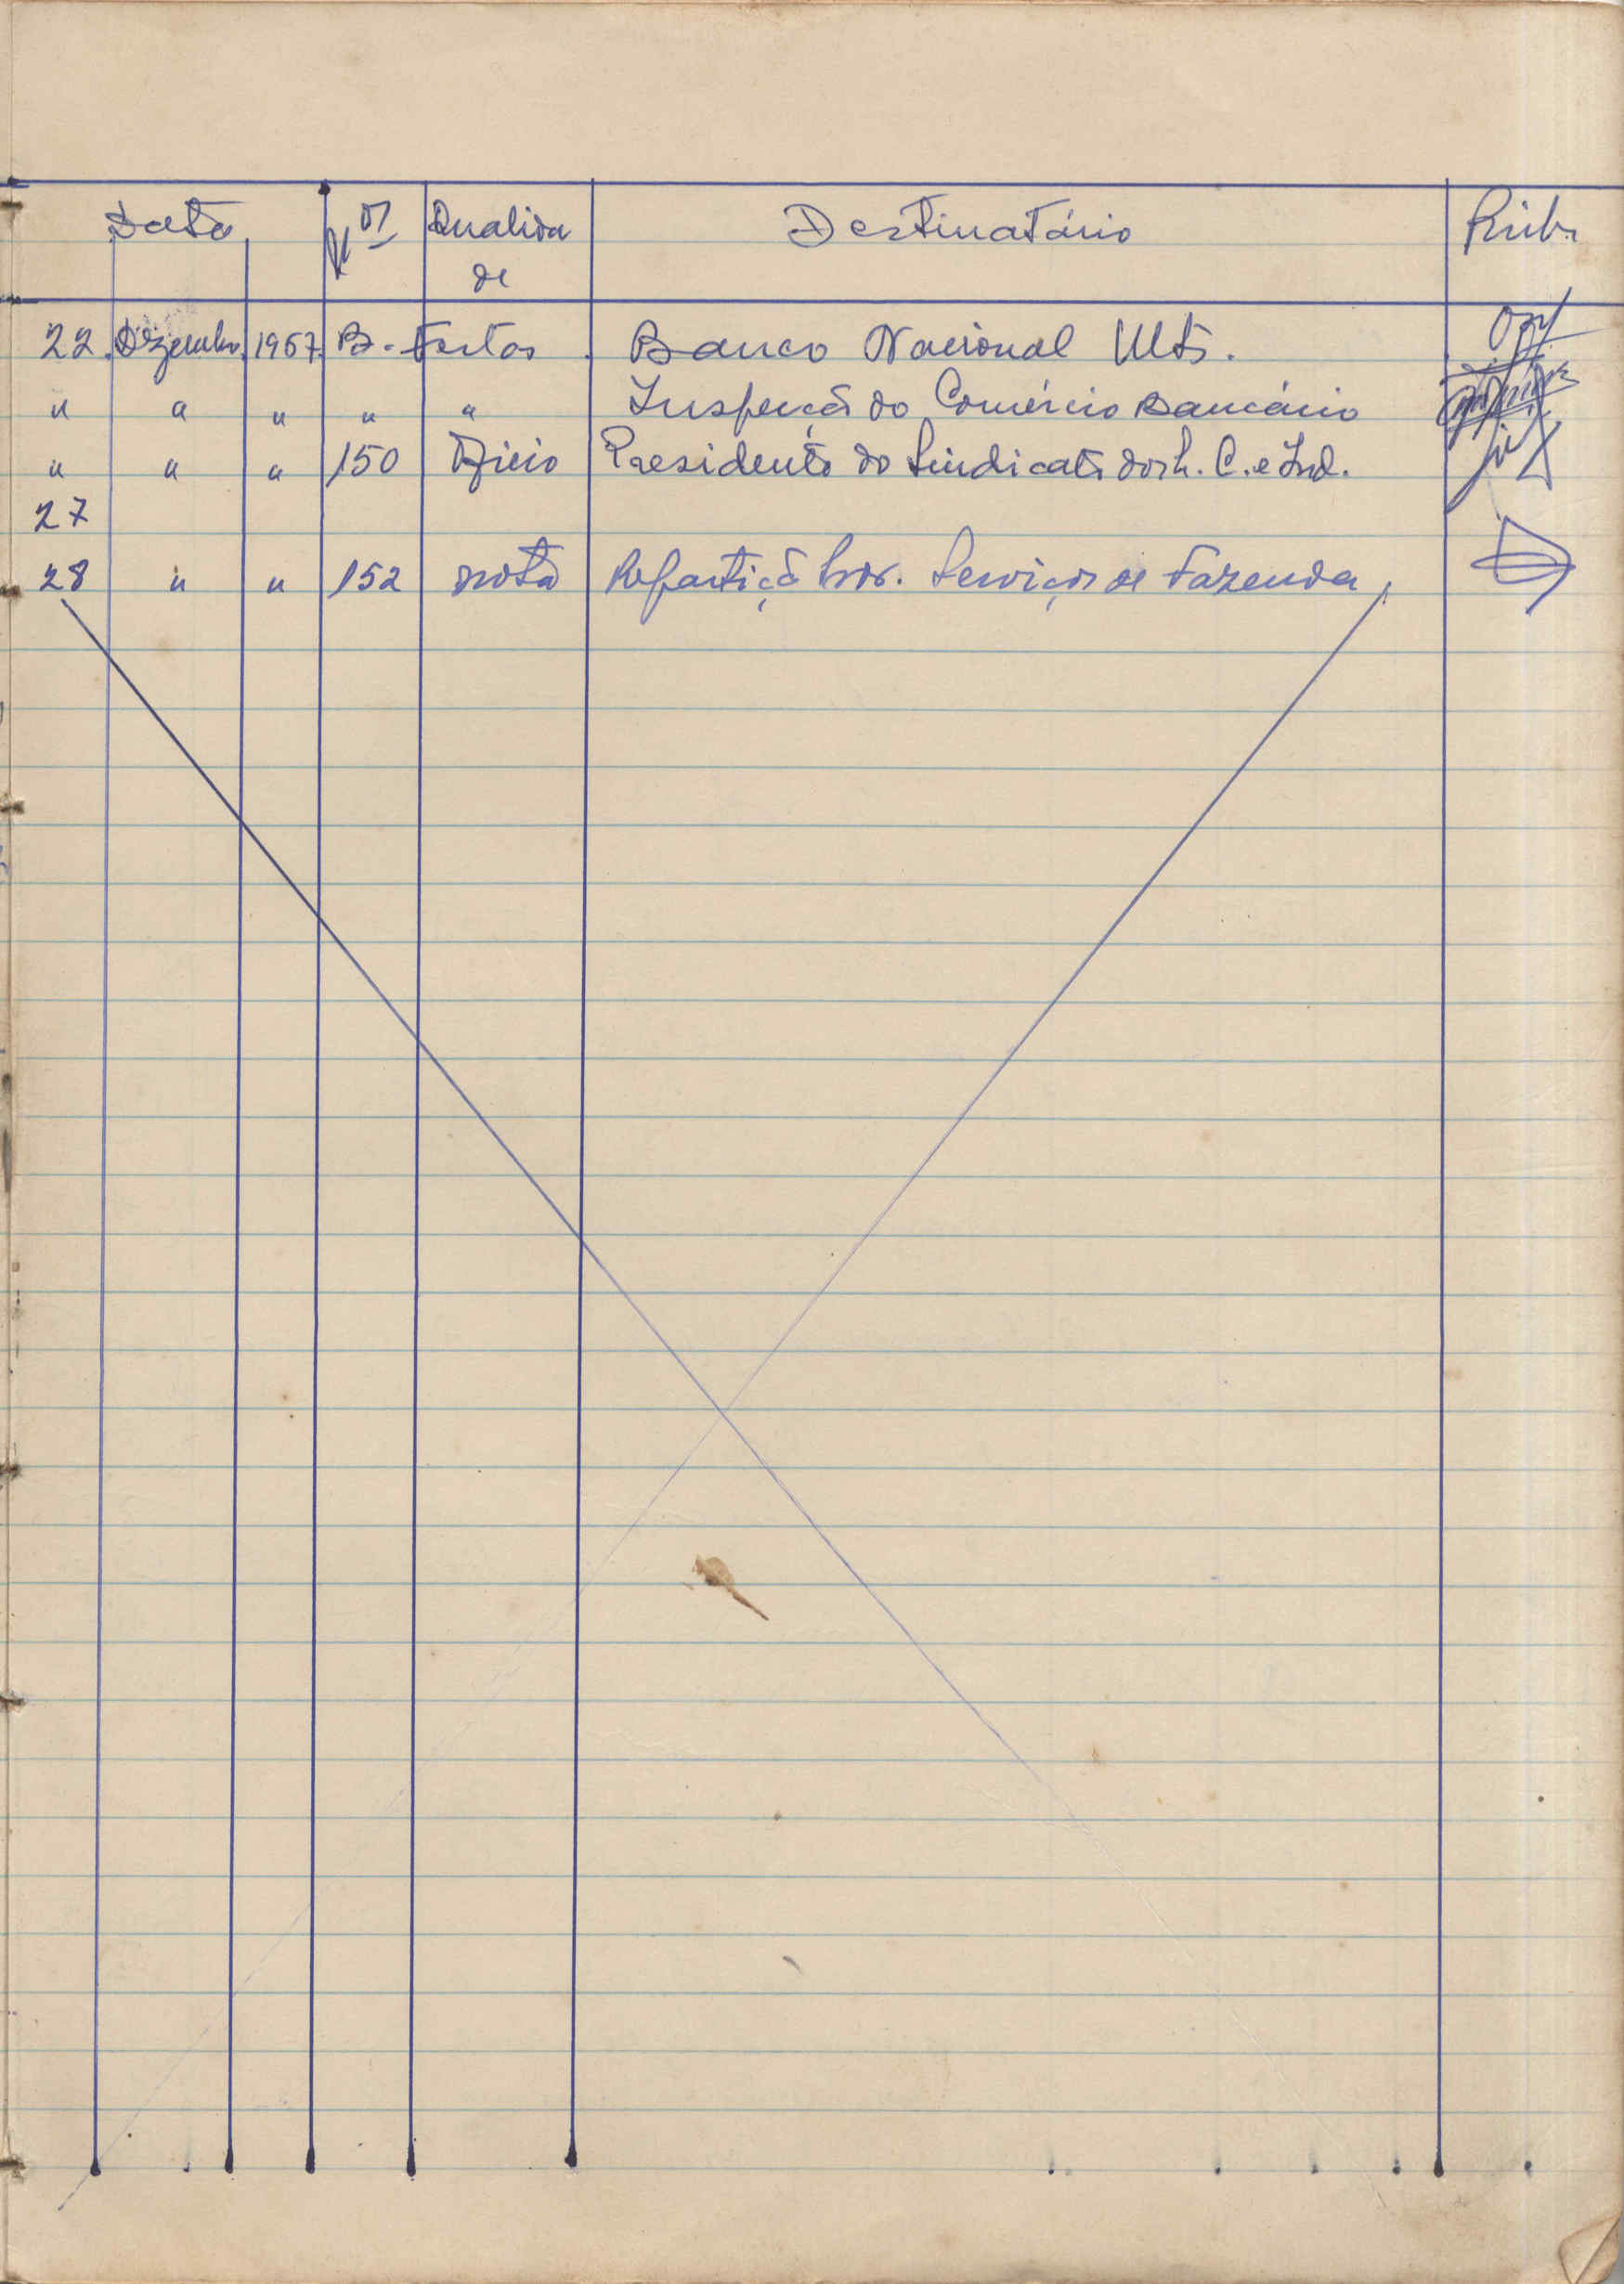 Data Nos Qualida Destinatário Rubr.
de
22 Dezembro 1967 B. Festas Banco Nacional Ultr.
" " " " " Inspecção do Comércio Bancário
" " " 150 Ofício Presidente do Sindicato C. e Ind.
27
28 " " 152 nota Repartição Prov. Serviços de Fazenda